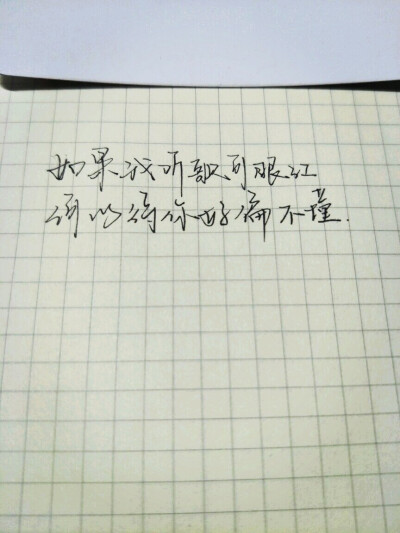 如果我听歌可眼红
何以待你好偏不懂.